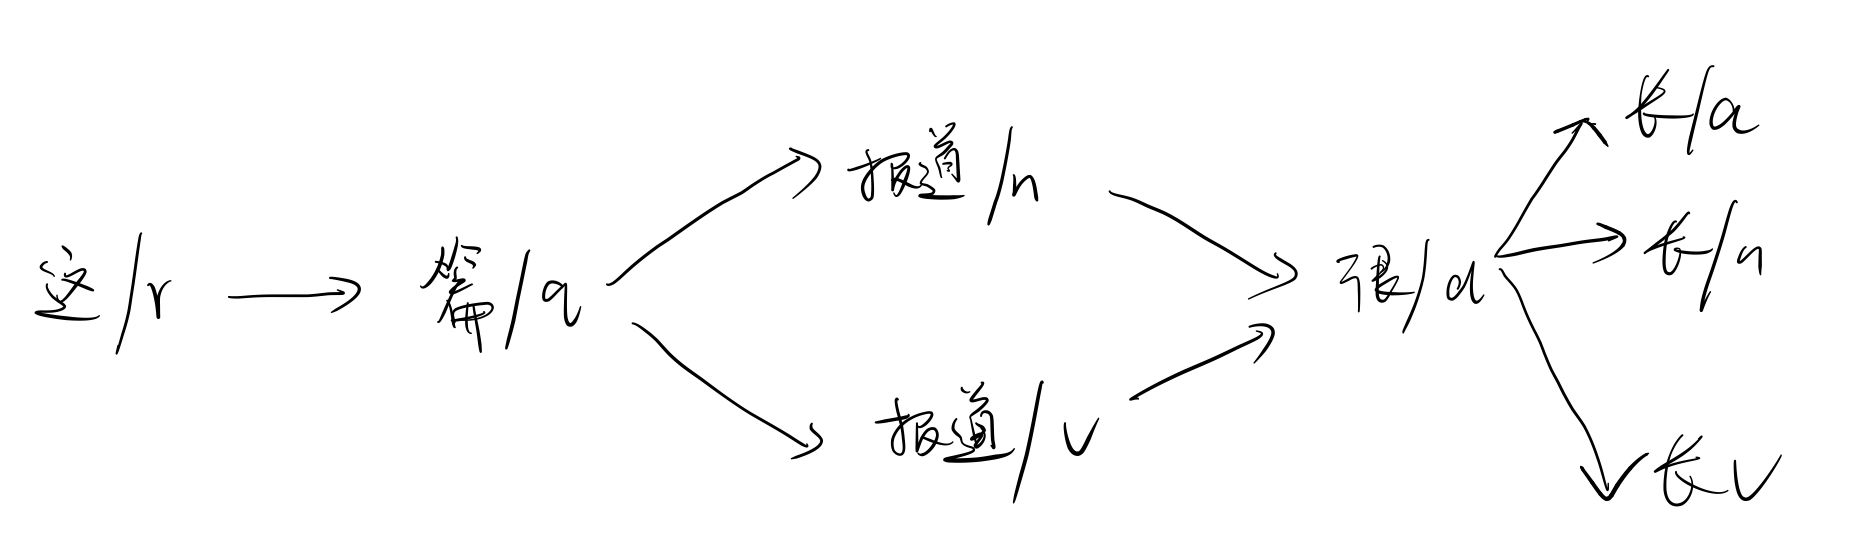 这/r
篇/q
报道/n
报道/v
很/d
长/a
长/n
长v